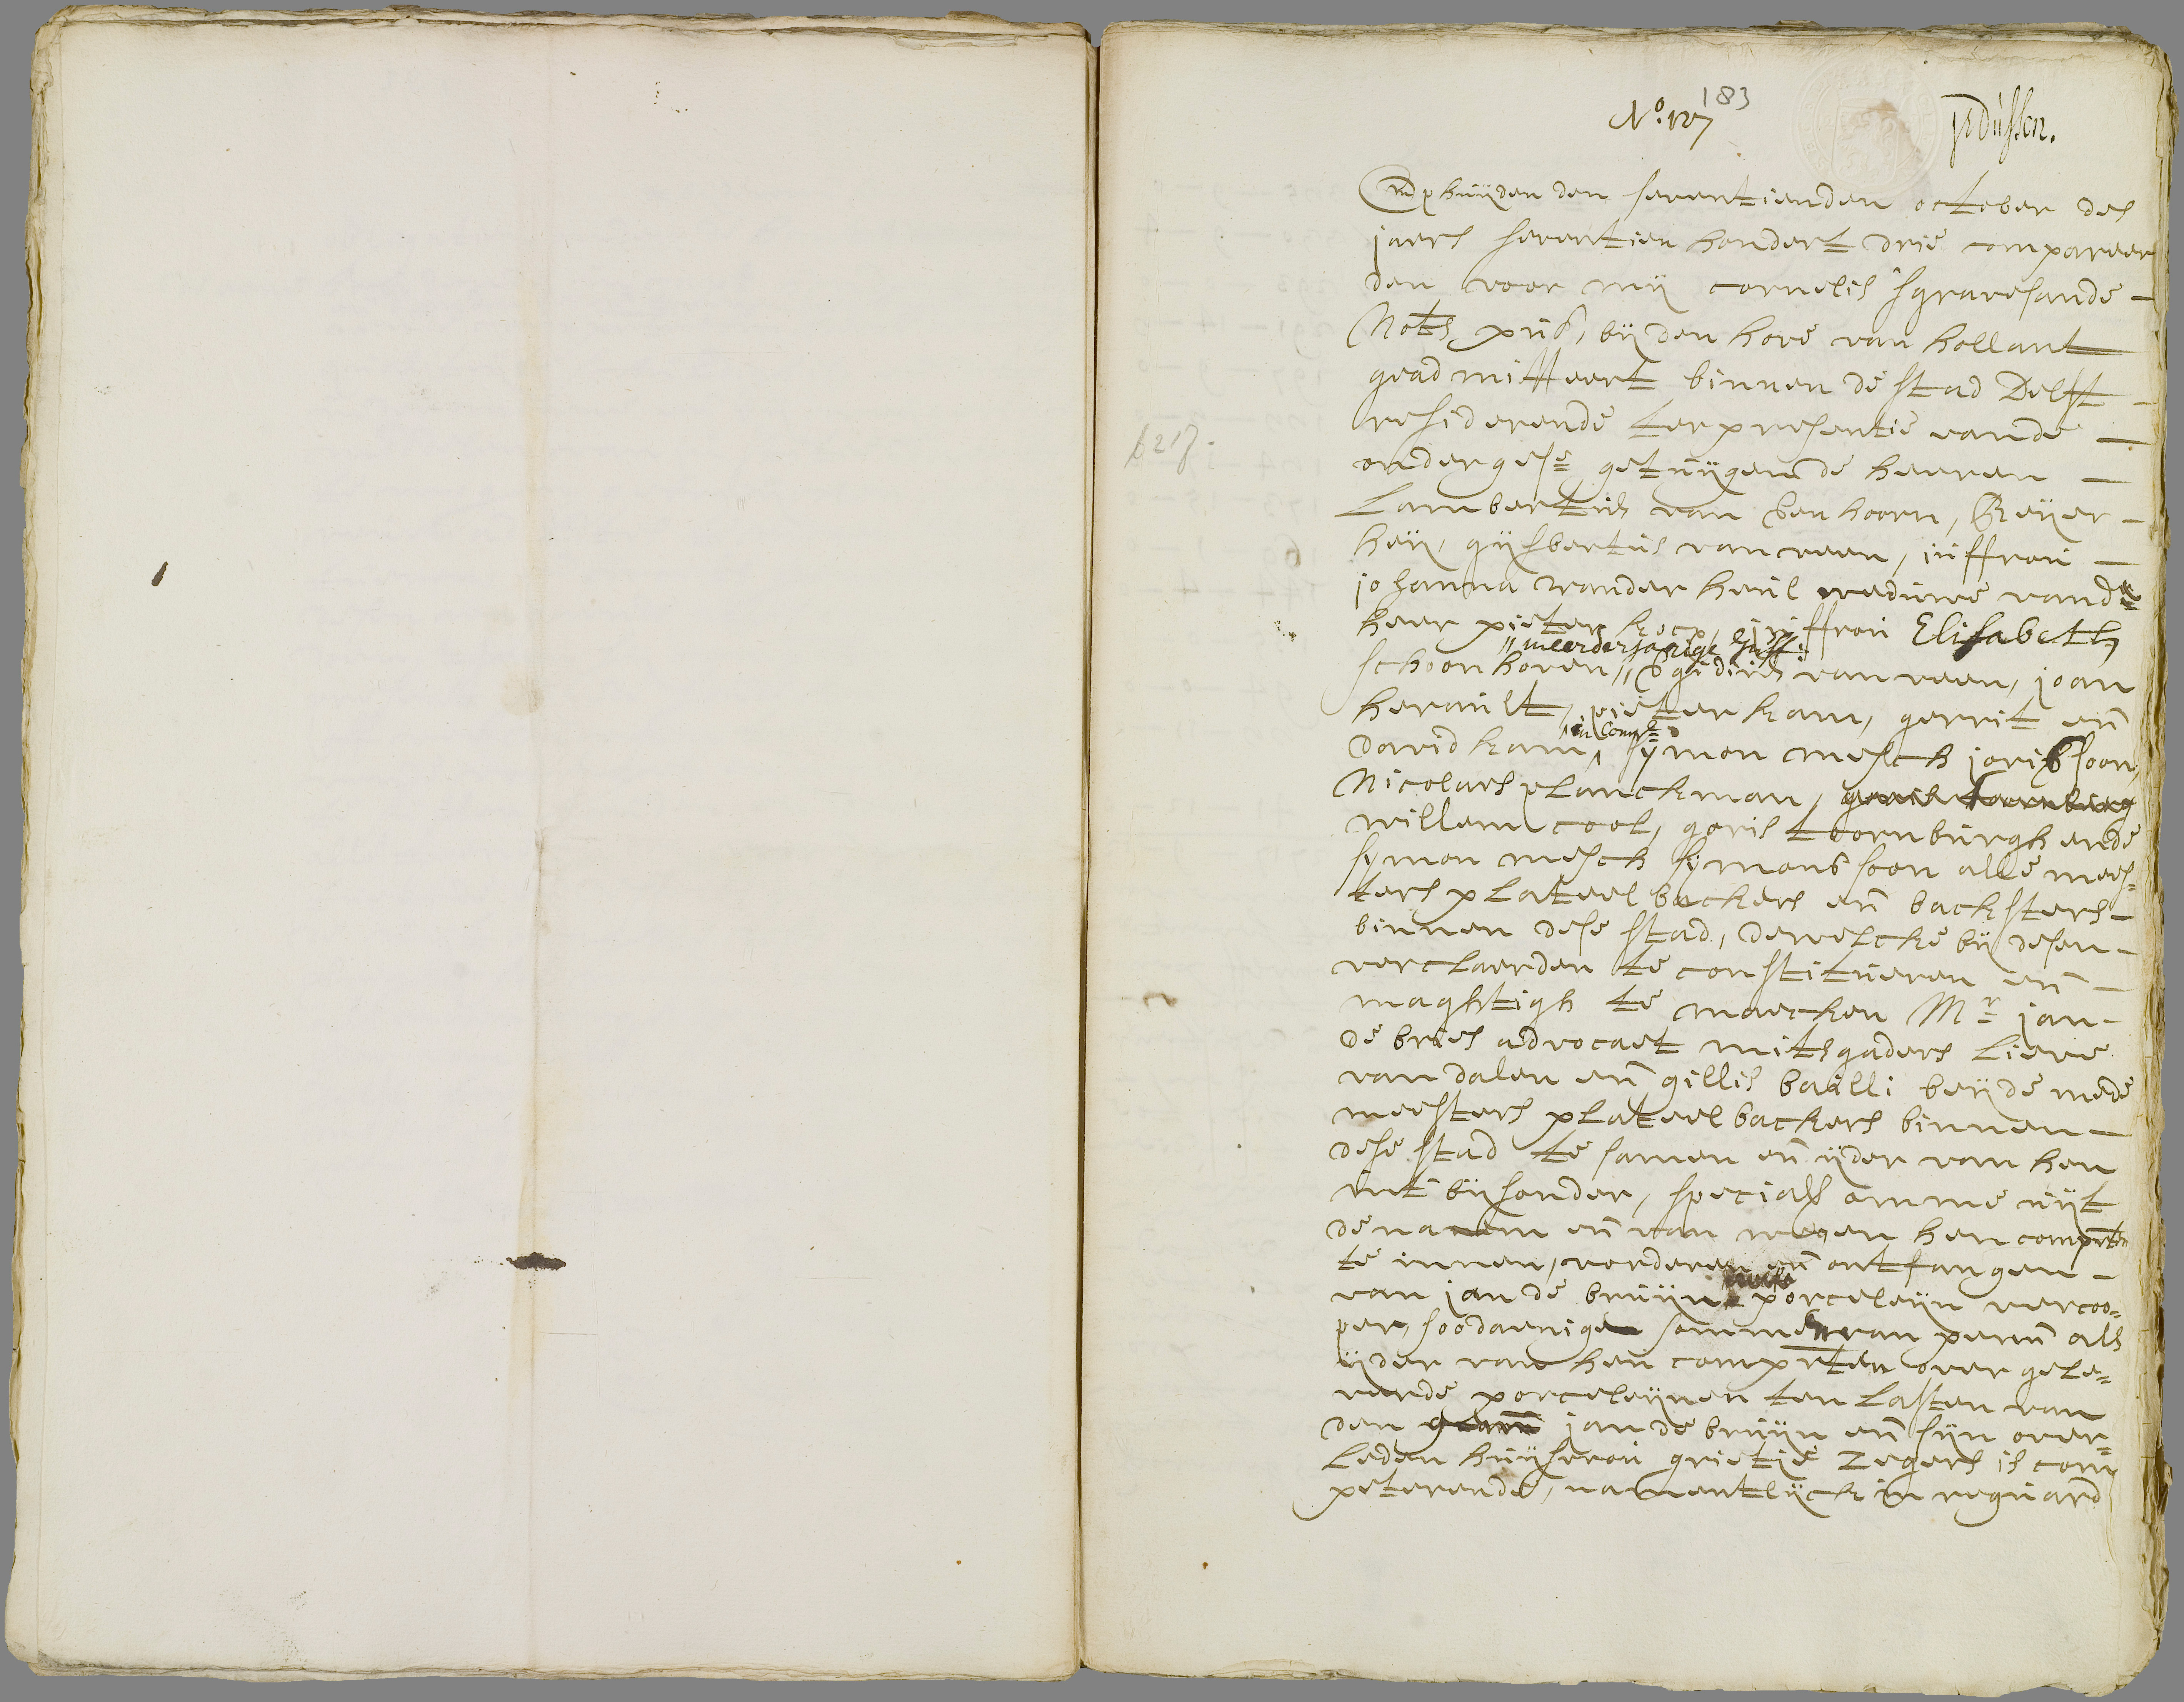 183
No. 127
vdussen.
Op huijden den seventienden october des
jaers seventien hondert drie compareer
den voor mij cornelis sgravesande
Nots. publ. bij den hove van hollant
geadmitteert binnen de stad Delft
residerende ter presentie vande
ondergesz. getuijgen de heeren
6218.
Lambertus van Eenhoorn, Reijer
heij, gijsbertus van veen, juffrou
johanna vander heul weduwe vande
heer pieter kocx, juffrou Elisabeth
"meerderjarige juff:
schoonhoven," Egidius van veen, joan
herault, pieter kam, gerrit en
in Comp:
david kam ^ sijmon mesch jorisz soon,
Nicolaes planckman,
willem cool, goris toornburgh ende
sijmon mesch sijmons soon alle mees=
ters plateelbackers en backsters
binnen dese stad, dewelcke bij desen
verclaerden te constitueren en
maghtigh te maecken Mr. jan
de bries advocaet mitsgaders Lieve
van dalen en gillis bailli beijde mede
meesters plateelbackers binnen
dese stad te samen en ijder van hen
int bijsonder, speciael omme uijt
de naem en van wegen hen comprten
te innen, vorderen en ontfangen
van jan de bruijn porceleijn vercoo=
per, soodaenige sommen van penn als
ijder van hen comprten over gele=
verde porceleijnen ten lasten van
den jan de bruijn en sijn over=
leden huijsvrou grietie Zegers is com
peterende, namentlijck in reguard